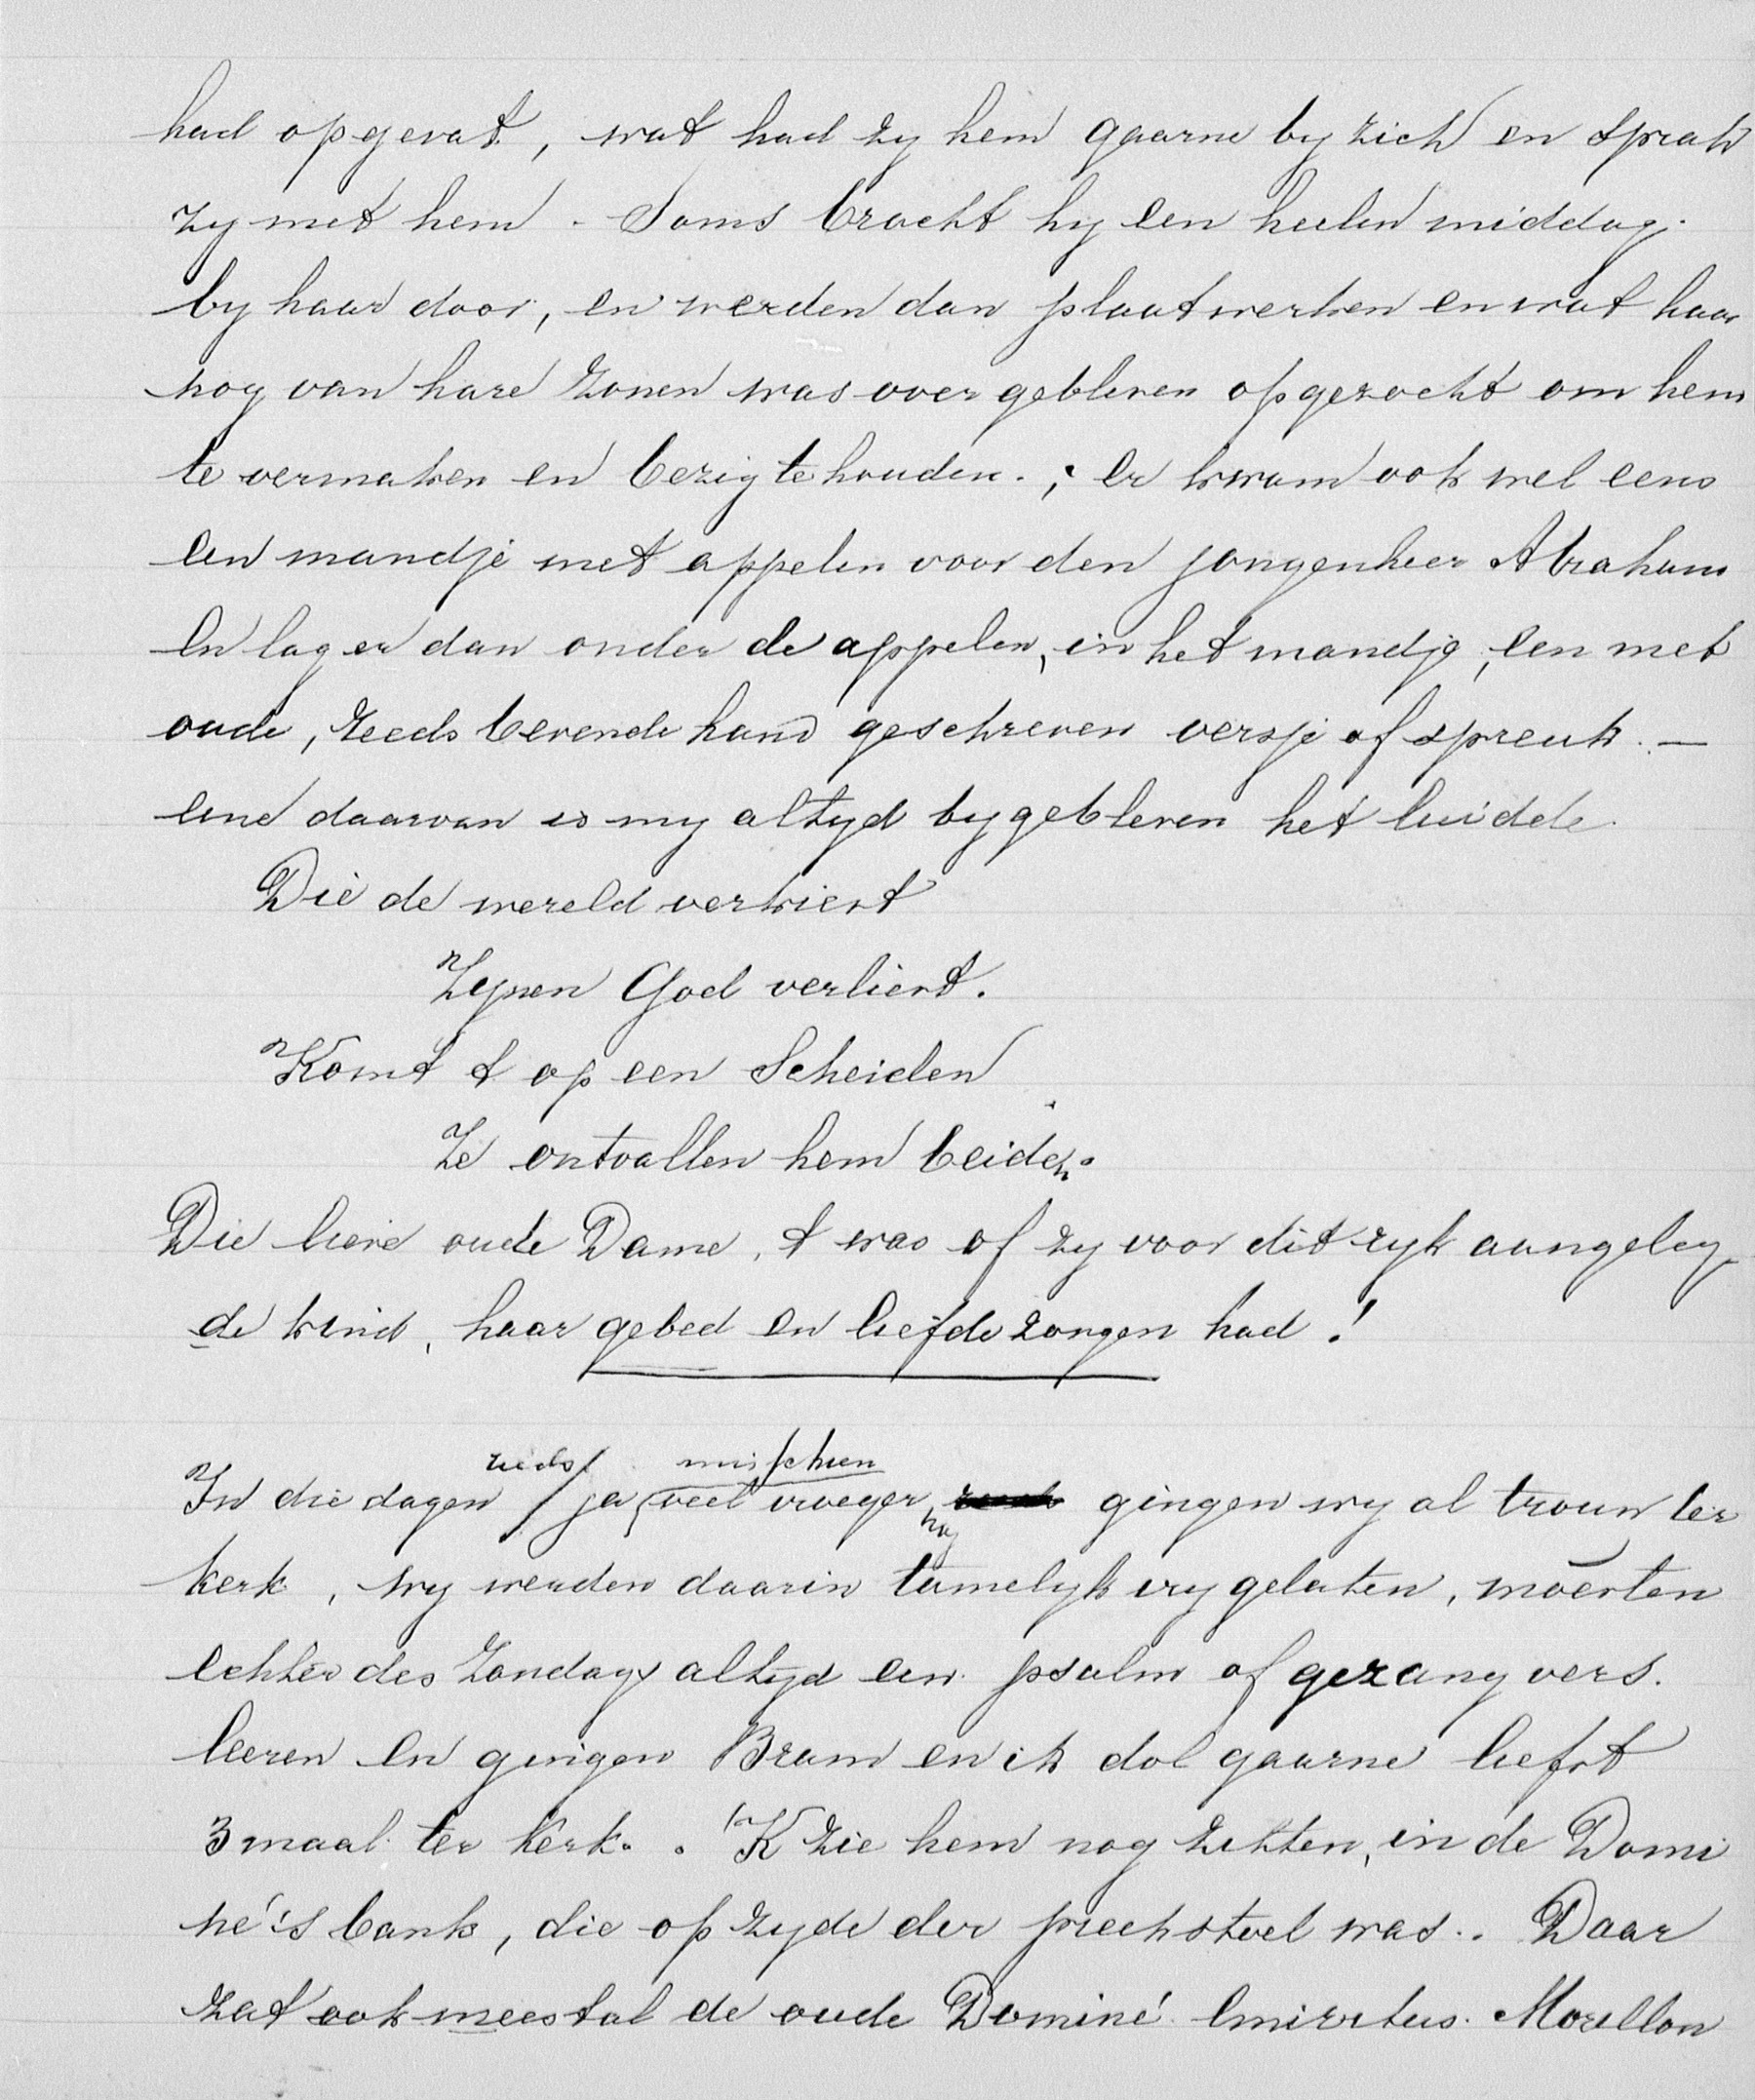 had opgevat, wat had zy hem gaarne by zich en sprak
zy met hem. Soms bracht hy een heelen middag
by haar door, en werden dan plaatwerken en wat haar
nog van hare zonen was over gebleven opgezocht om hem
te vermaken en bezig te houden. ; er kwam ook wel eens
een mandje met appelen voor den jongenheer Abraham
en lag er dan onder de appelen, in het mandje, een met
oude, reeds bevende hand geschreven versje of spreuk. —
eene daarvan is my altyd bygebleven het luidde
Die de wereld verkiest
Zynen God verliest.
Komt t op een Scheiden
Ze ontvallen hem beiden.
Die lieve oude Dame, t was of zy voor dit ryk aangeleg
de kind, haar gebed en liefde zorgen had!
reeds misschien
In die dagen ja, veel vroeger nog gingen wy al trouw ter
kerk, wy werden daarin tamelyk vry gelaten, moesten
echter des Zondags altyd een psalm of gezang vers.
leeren en gingen Bram en ik dol gaarne liefst
3 maal ter kerk. 'K zie hem nog zitten, in de Domi
né's bank, die op zyde der preekstoel was.. Daar
zat ook meestal de oude Dominé Emiritus. Morillon